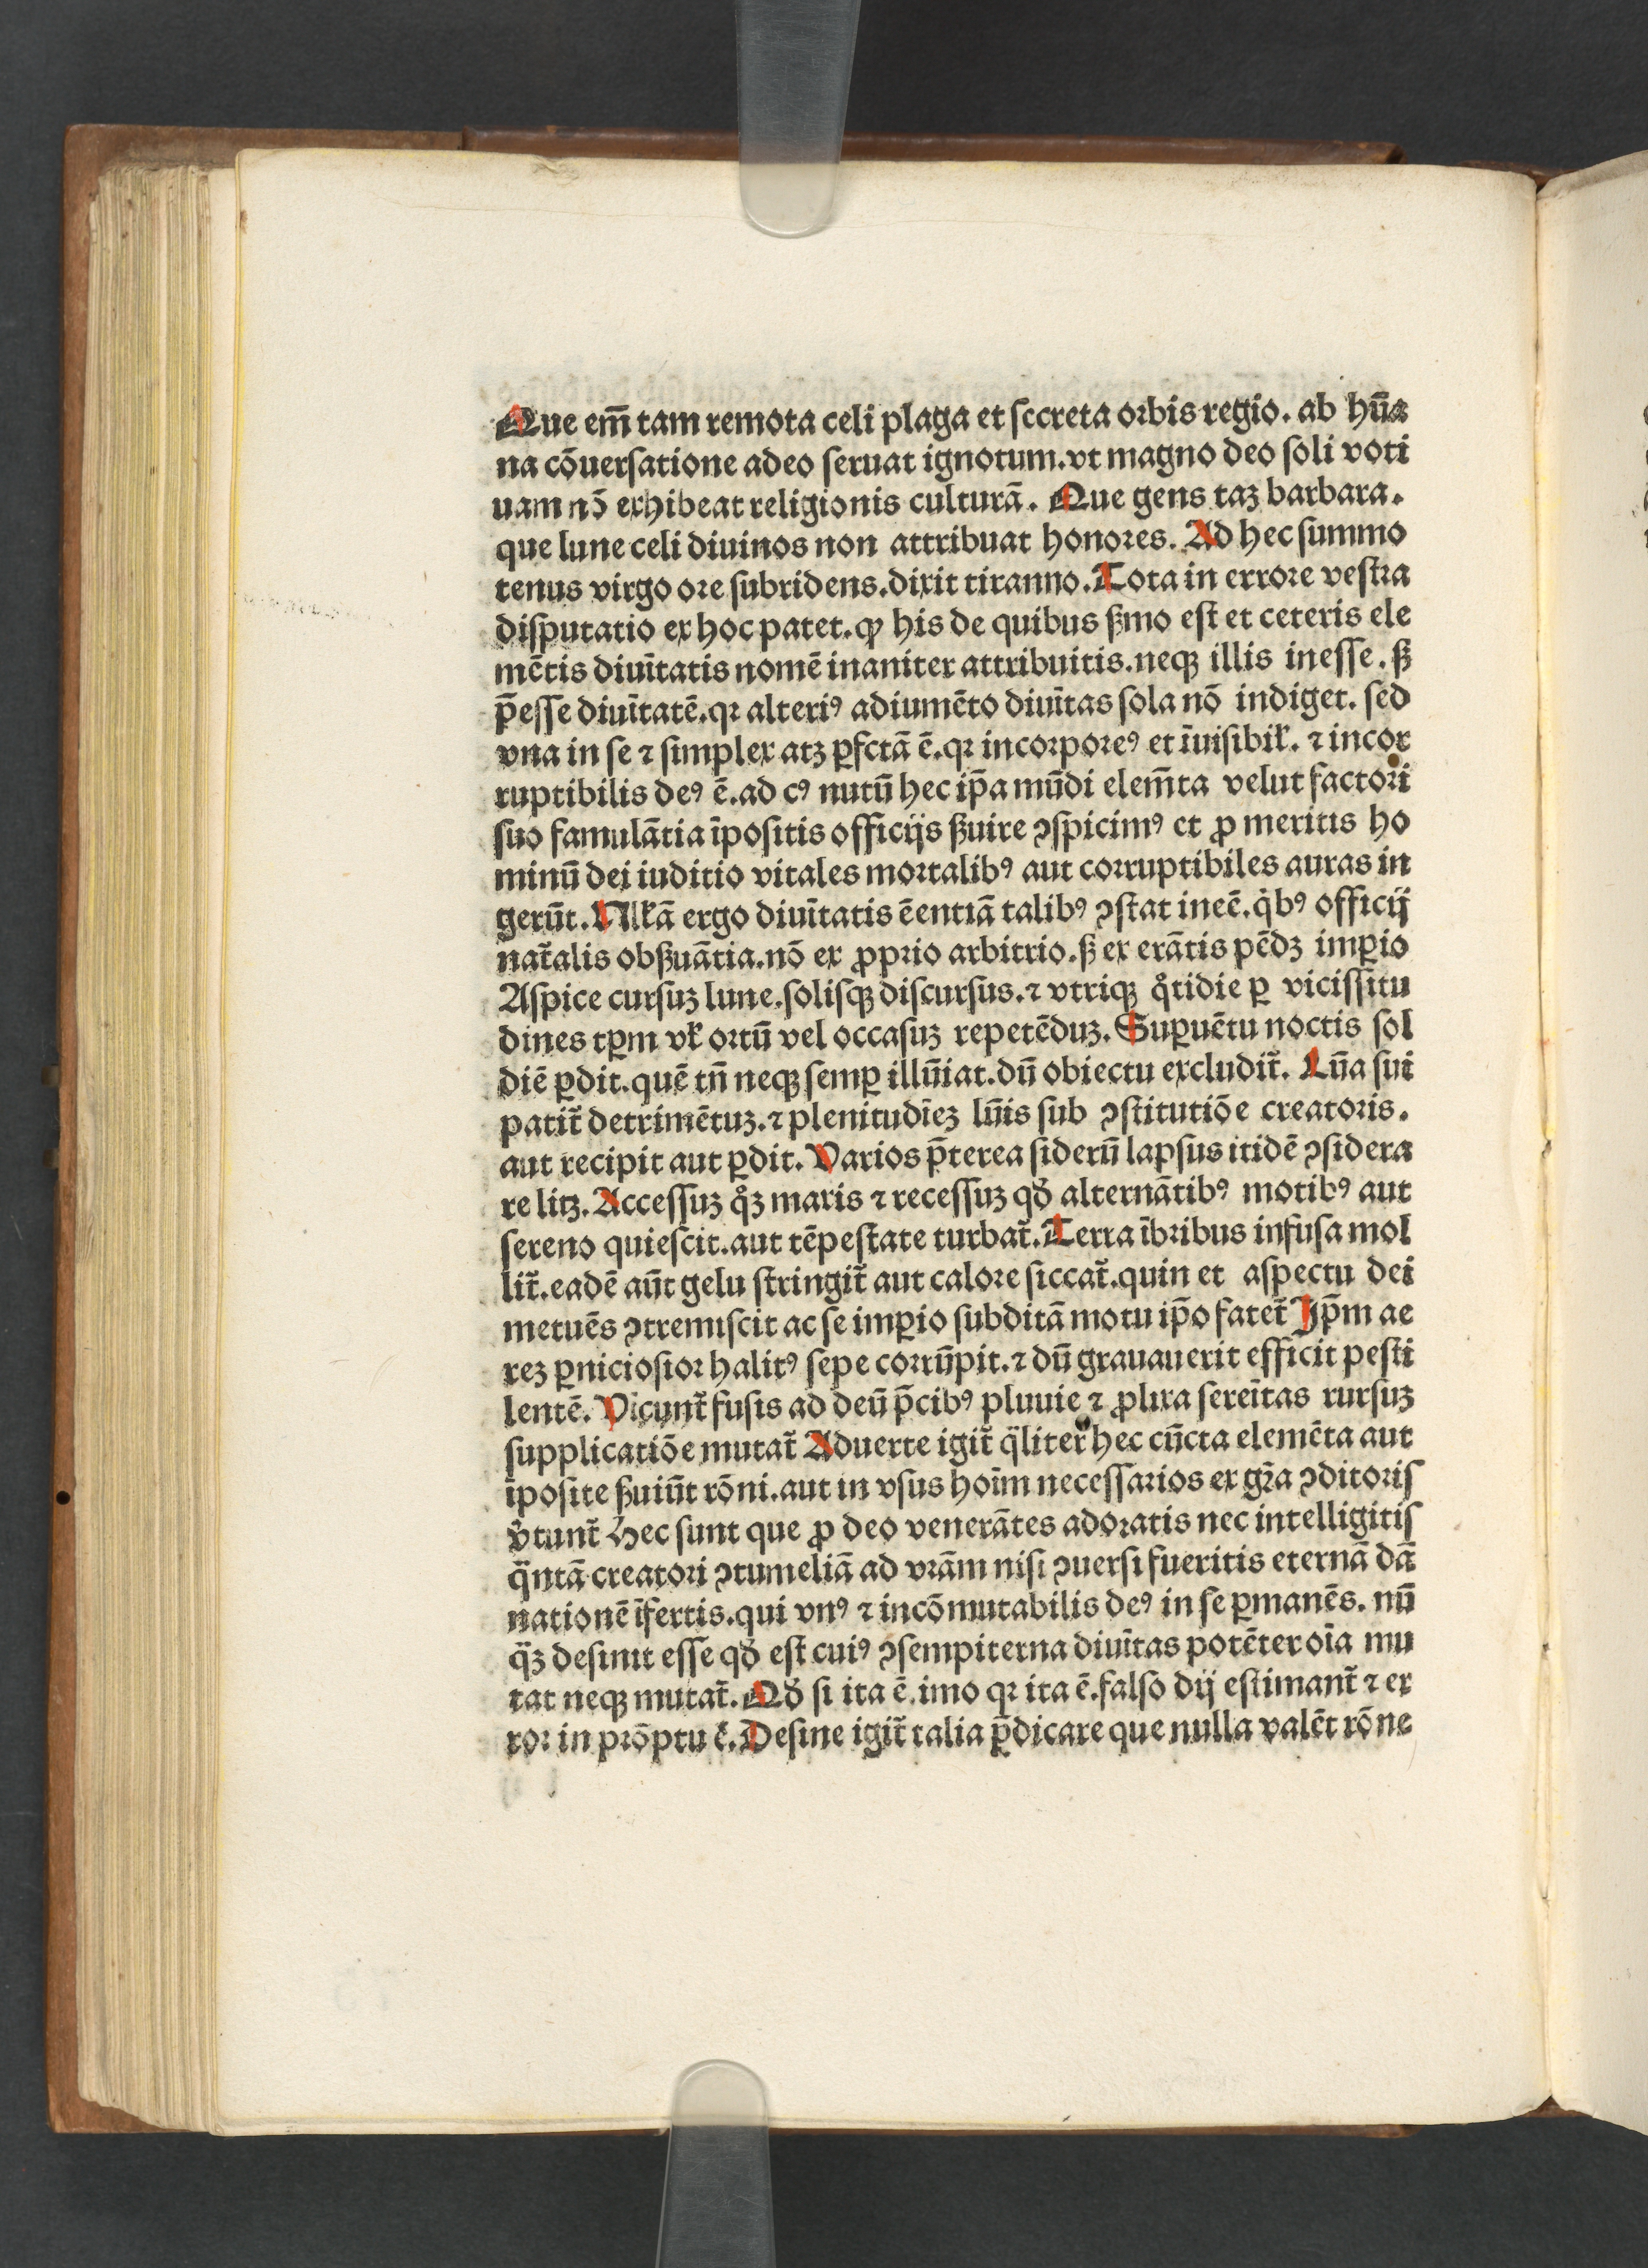 Que em̄ tam remota celi plaga et secreta orbis regio. ab hūa
na cōuersatione adeo seruat ignotum. vt magno deo soli voti
uam nō exhibeat religionis culturā. Que gens taꝫ barbara.
que lune celi diuinos non attribuat honores. Ad hec summo
tenus virgo ore subridens. dixit tiranno. Tota in errore vestra
disputatio ex hoc patet. ꝙ his de quibus ẜmo est et ceteris ele
mētis diuītatis nomē inaniter attribuitis. neqꝫ illis inesse. ẜꝫ
p̄esse diuītatē. qꝛ alteriꝰ adiumēto diuītas sola nō indiget. sed
vna in se ⁊ simplex atꝫ ꝑfctā ē. qꝛ incorporeꝰ et īuisibiƚ. ⁊ incor
ruptibilis deꝰ ē. ad cꝰ nutū hec ip̄a mūdi elem̄ta velut factori
suo famulātia īpositis officijs ẜuire ꝯspicimꝰ et ꝓ meritis ho
minū dei iuditio vitales mortalibꝰ aut corruptibiles auras in
gerūt. Nllā ergo diuītatis ēentiā talibꝰ ꝯstat ineē. qͥbꝰ officij
nat̄alis obẜuātia. nō ex ꝓprio arbitrio. ẜꝫ ex erātis pēdꝫ imꝑio
Aspice cursuꝫ lune. solisqꝫ discursus. ⁊ vtriqꝫ qͦtidie ꝑ vicissitu
dines tꝑm vƚ ortū vel occasuꝫ repetēduꝫ. Suꝑuētu noctis sol
diē ꝑdit. quē tn̄ neqꝫ semꝑ illūiat. dū obiectu excludit̄. Lūa sui
patit̄ detrimētuꝫ. ⁊ plenitudīeꝫ lūis sub ꝯstitutiōe creatoris.
aut recipit aut ꝑdit. Varios p̄terea siderū lapsus itidē ꝯsidera
re litꝫ. Accessuꝫ qͦꝫ maris ⁊ recessuꝫ qđ alternātibꝰ motibꝰ aut
sereno quiescit. aut tēpestate turbat̄. Terra ībribus infusa mol
lit̄. eadē aūt gelu stringit̄ aut calore siccat̄. quin et aspectu dei
metuēs ꝯtremiscit ac se imꝑio subditā motu ip̄o fatet̄ Ip̄m ae
reꝫ ꝑniciosior halitꝰ sepe corrūpit. ⁊ dū grauauerit efficit pesti
lentē. Vicunt̄ fusis ad deū p̄cibꝰ pluuie ⁊ ꝓlixa sereītas rursuꝫ
supplicatiōe mutat̄ Aduerte igit̄ qᷓliter hec cūcta elemēta aut
īposite ẜuiūt rōni. aut in vsus hoīm necessarios ex gr̄a ꝯditoris
v̓tunt̄ Hec sunt que ꝓ deo venerātes adoratis nec intelligitis
qᷓntā creatori ꝯtumeliā ad vrām nisi ꝯuersi fueritis eternā dā
nationē īfertis. qui vnꝰ ⁊ incōmutabilis deꝰ in se ꝑmanēs. nū
qᷓꝫ desinit esse qđ est cuiꝰ ꝯsempiterna diuītas potēter oīa mu
tat neqꝫ mutat̄. Qđ si ita ē. imo qꝛ ita ē. falso dij estimant̄ ⁊ er
ror in prōptu ē. Desine igit̄ talia p̄dicare que nulla valēt rōne